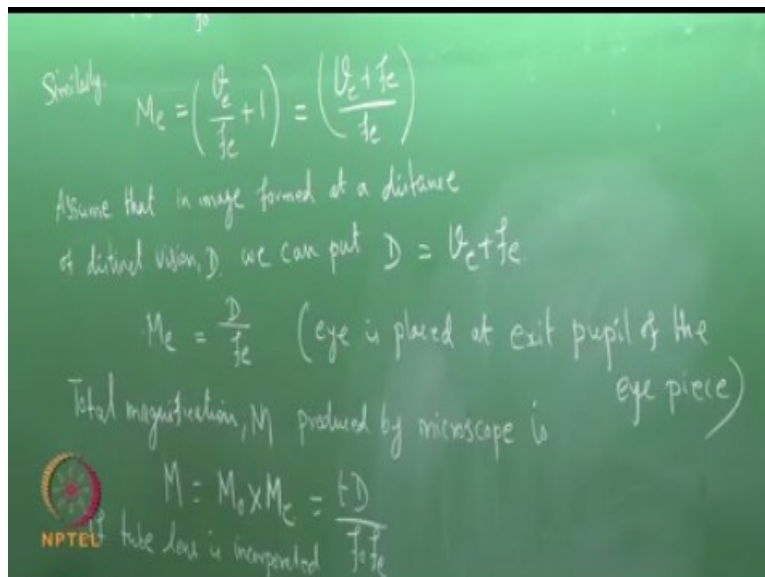 Similarly.
Me = (ve/fe + 1) = (ve + fe/fe)
Assume that in image formed at a distance
of distinct vision, D. we can put D = ve + fe
Me = D/fe (eye is placed at exit pupil of the
eye piece)
Total magnification, M produced by microscope is
M = Mo x Me = tD/fo fe
If tube lens is incorporated
NPTEL